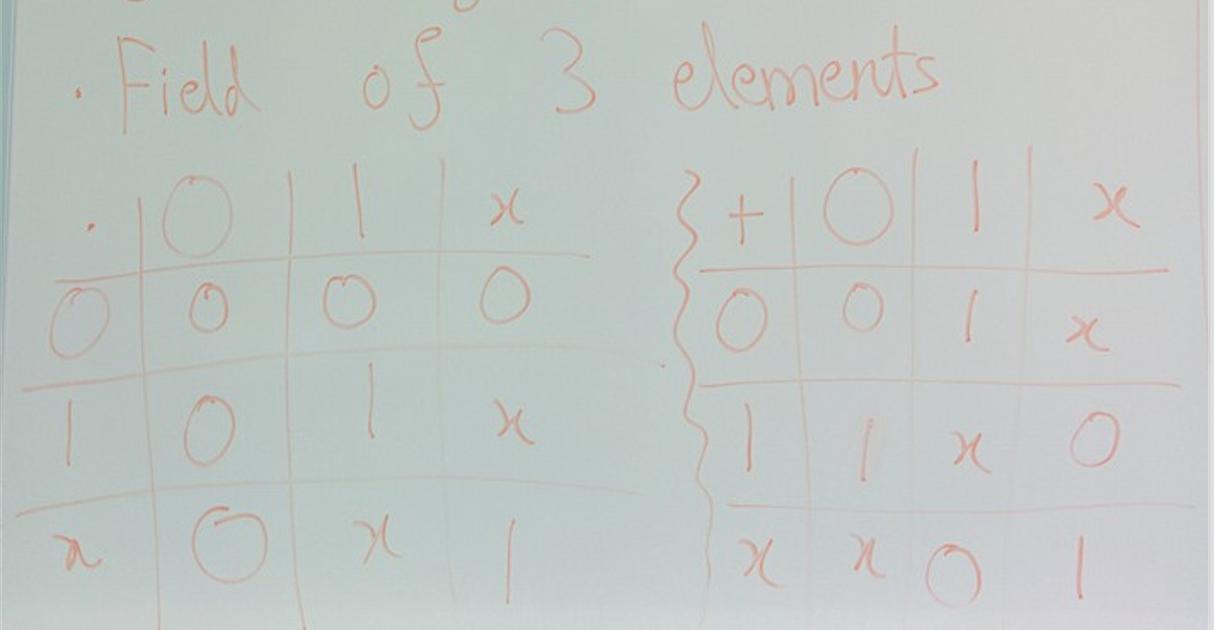 . Field of 3 elements
. | 0 | 1 | x } + | 0 | 1 | x
0 | 0 | 0 | 0 } 0 | 0 | 1 | x
1 | 0 | 1 | x } 1 | 1 | x | 0
x | 0 | x | 1 } x | x | 0 | 1